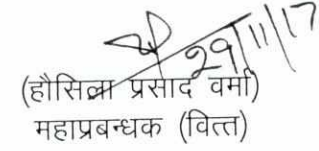 29/11/17
(हौसिला प्रसाद वर्मा)
महाप्रबन्धक (वित्त)